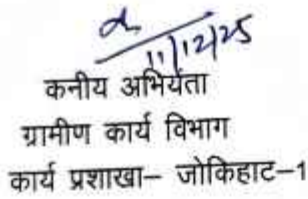 11/12/25
कनीय अभियंता
ग्रामीण कार्य विभाग
कार्य प्रशाखा– जोकिहाट–1